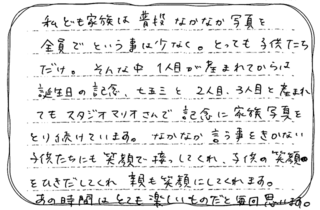 私ども家族は普段なかなか写真を
全員でという事は少なく。とっても子供たち
だけ。そんな中1人目が産まれてからは
誕生日の記念、七五三と2人目、3人目と産まれ
てもスタジオマリオさんで記念に家族写真を
とり続けています。なかなか言う事をきかない
子供たちにも笑顔で接してくれ、子供の笑顔
をひきだしてくれ 親も笑顔にしてくれます。
あの時間はとても楽しいものだと毎回思います。